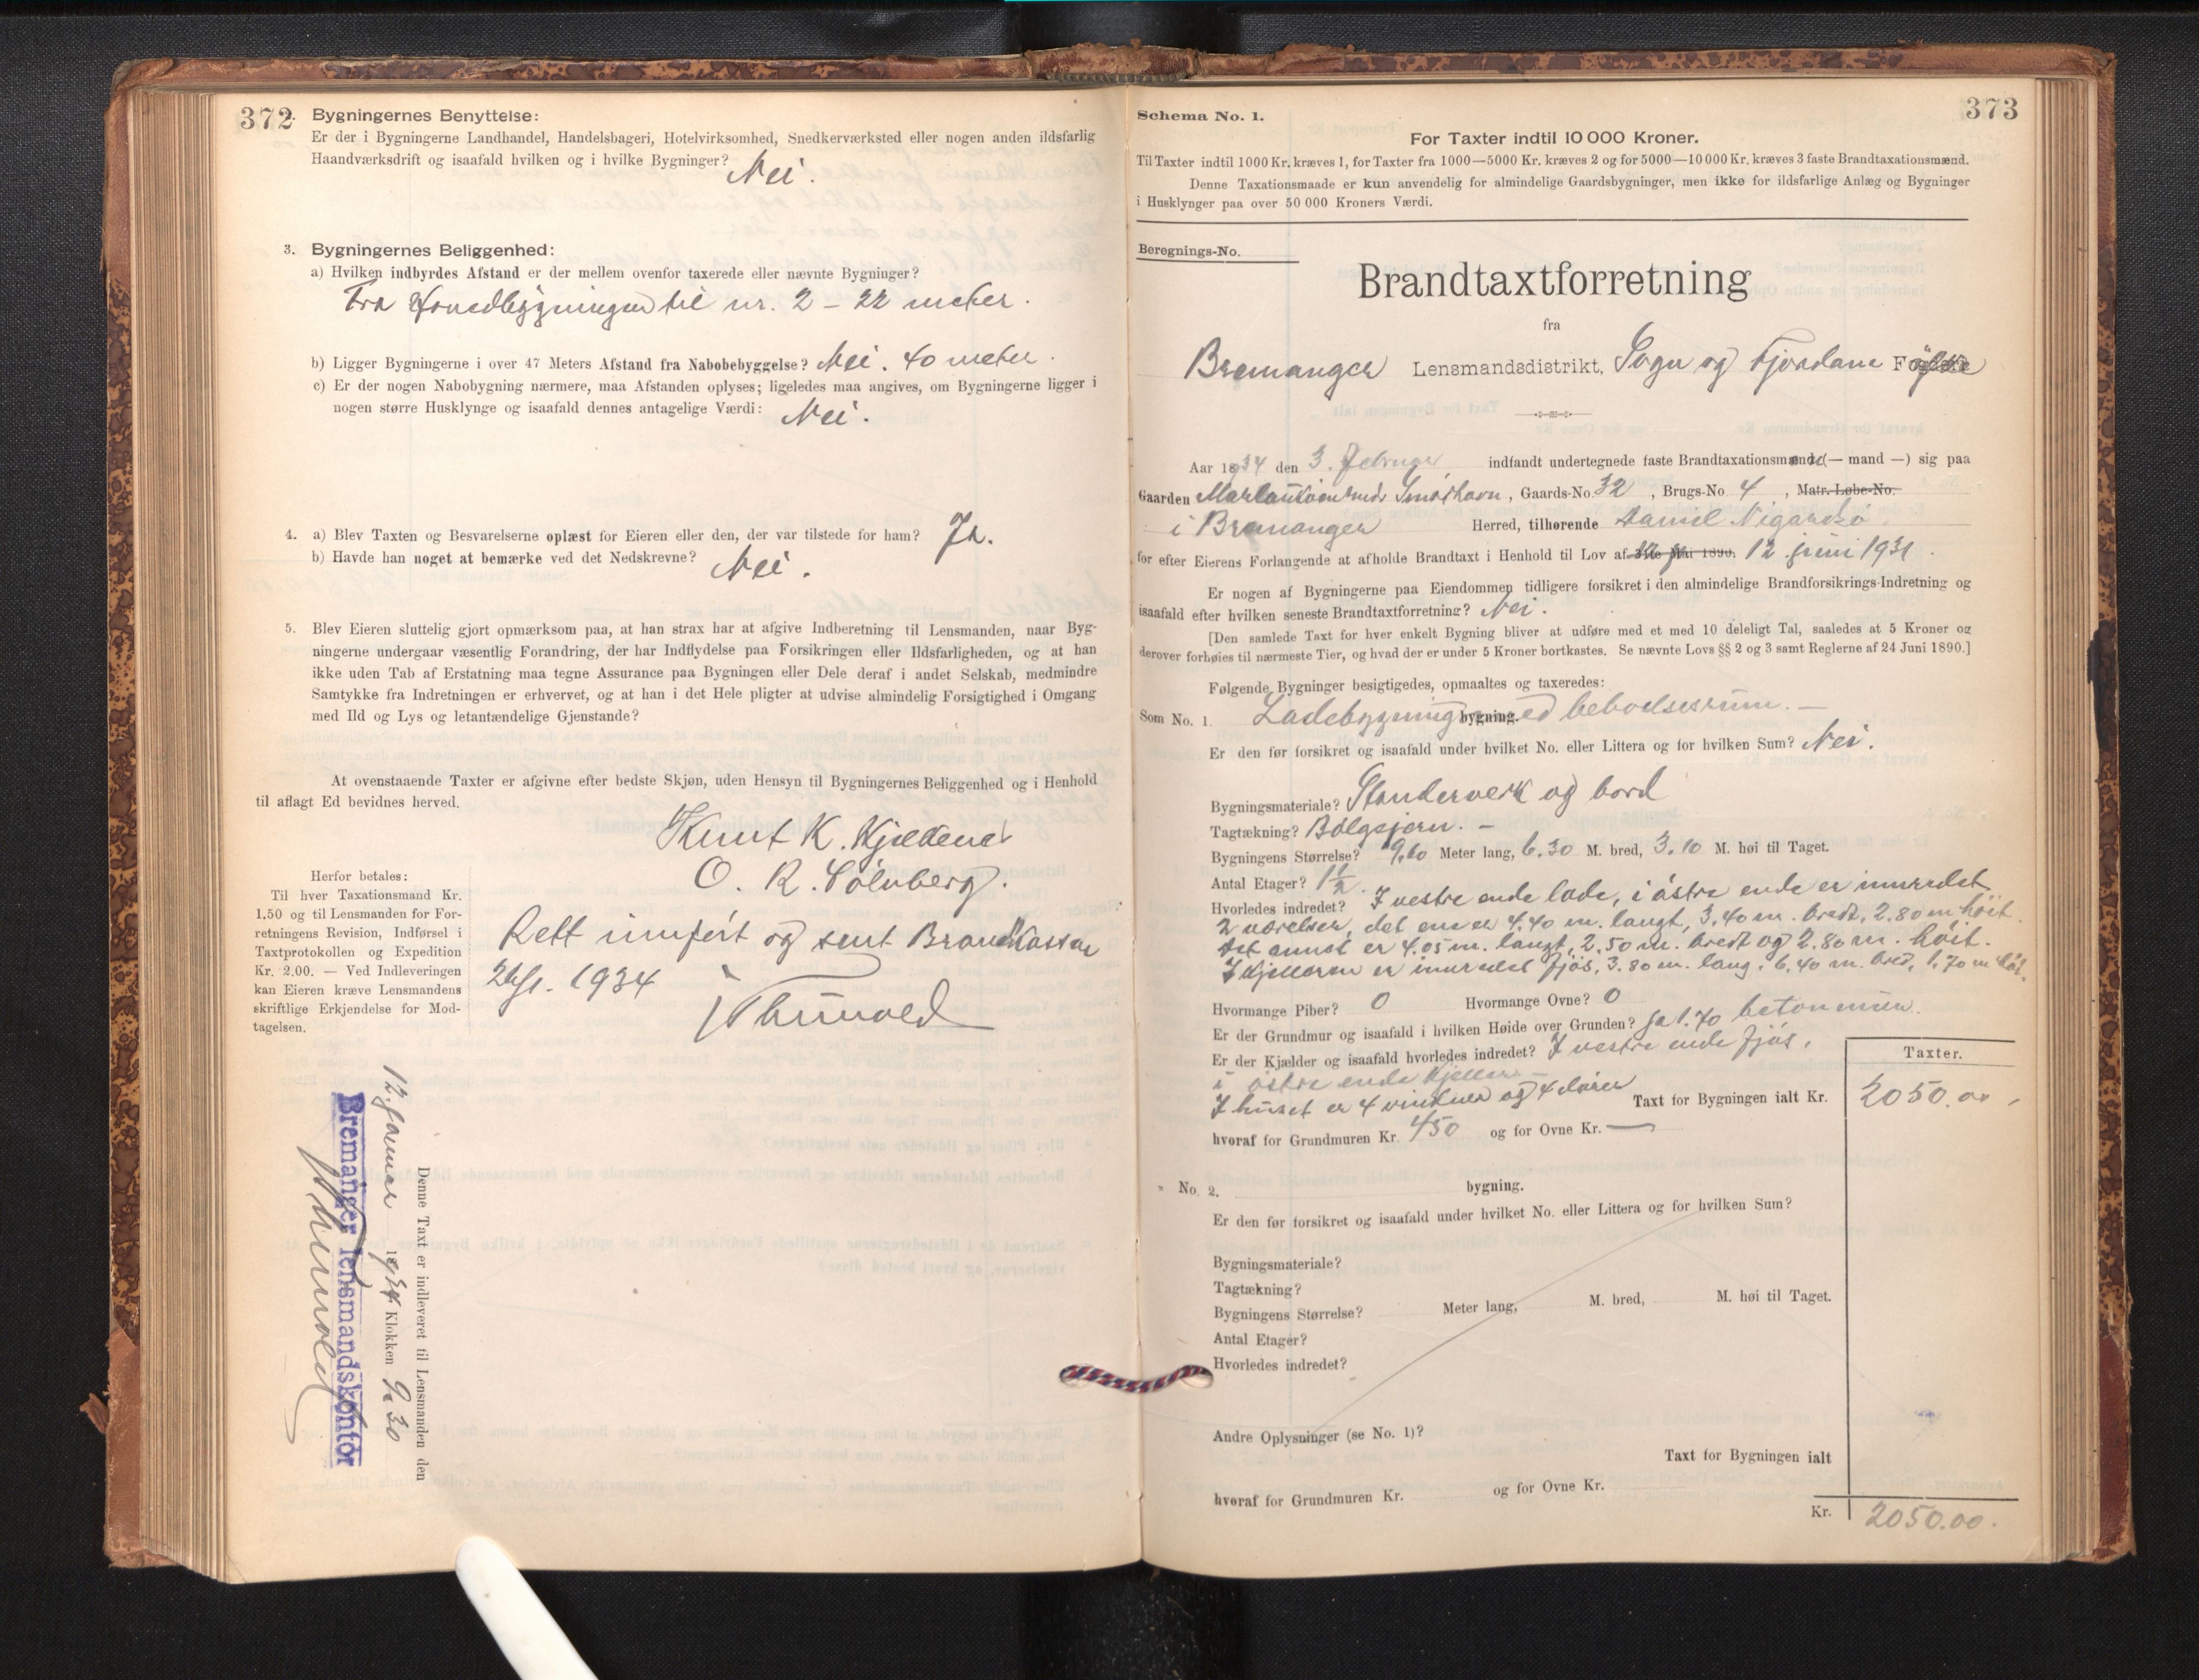 372
2. Bygningernes Benyttelse:
Er der i Bygningerne Landhandel, Handelsbageri, Hotelvirksomhed, Snedkerværksted eller nogen anden ildsfarlig
Haandværksdrift og isaafald hvilken og i hvilke Bygninger? Nei.
3. Bygningernes Beliggenhed:
a) Hvilken indbyrdes Afstand er der mellem ovenfor taxerede eller nævnte Bygninger?
Fra Hovedbygningen til nr. 2 – 22 meter.
b) Ligger Bygningerne i over 47 Meters Afstand fra Nabobebyggelse? Nei. 40 meter.
c) Er der nogen Nabobygning nærmere, maa Afstanden oplyses; ligeledes maa angives, om Bygningerne ligger i
nogen større Husklynge og isaafald dennes antagelige Værdi: Nei.
4. a) Blev Taxten og Besvarelserne oplæst for Eieren eller den, der var tilstede for ham? Ja.
b) Havde han noget at bemærke ved det Nedskrevne? Nei.
5. Blev Eieren sluttelig gjort opmærksom paa, at han strax har at afgive Indberetning til Lensmanden, naar Byg-
ningerne undergaar væsentlig Forandring, der har Indflydelse paa Forsikringen eller Ildsfarligheden, og at han
ikke uden Tab af Erstatning maa tegne Assurance paa Bygningen eller Dele deraf i andet Selskab, medmindre
Samtykke fra Indretningen er erhvervet, og at han i det Hele pligter at udvise almindelig Forsigtighed i Omgang
med Ild og Lys og letantændelige Gjenstande?
At ovenstaaende Taxter er afgivne efter bedste Skjøn, uden Hensyn til Bygningernes Beliggenhed og i Henhold
til aflagt Ed bevidnes herved.
Knut K.
O. R. Sólvberg.
Herfor betales:
Til hver Taxationsmand Kr.
1,50 og til Lensmanden for For-
retningens Revision, Indførsel i
Taxtprotokollen og Expedition
Kr. 2.00. — Ved Indleveringen
kan Eieren kræve Lensmandens
skriftlige Erkjendelse for Mod-
tagelsen.
Rett innført og sent Brandkassen
1934
Denne Taxt er indleveret til Lensmanden den
12. januar 1934 Klokken 9.30
Bremanger lensmandskontor
373
Schema No. 1.
For Taxter indtil 10 000 Kroner.
Til Taxter indtil 1000 Kr. kræves 1, for Taxter fra 1000—5000 Kr. kræves 2 og for 5000—10 000 Kr. kræves 3 faste Brandtaxationsmænd.
Denne Taxationsmaade er kun anvendelig for almindelige Gaardsbygninger, men ikke for ildsfarlige Anlæg og Bygninger
i Husklynger paa over 50 000 Kroners Værdi.
Beregnings-No.
Brandtaxtforretning
fra
Bremanger Lensmandsdistrikt, Sogn og Fjordane
Aar 1934 den 3. Februar indfandt undertegnede faste Brandtaxationsmænd (— mand —) sig paa
Gaarden Smørhavn, Gaards-No. 32, Brugs-No. 4, Matr.-Løbe-No.
i Bremanger Herred, tilhørende Daniel Nigardsø
for efter Eierens Forlangende at afholde Brandtaxt i Henhold til Lov af 12 juni 1931.
Er nogen af Bygningerne paa Eiendommen tidligere forsikret i den almindelige Brandforsikrings-Indretning og
isaafald efter hvilken seneste Brandtaxtforretning? Nei.
[Den samlede Taxt for hver enkelt Bygning bliver at udføre med et med 10 deleligt Tal, saaledes at 5 Kroner og
derover forhøies til nærmeste Tier, og hvad der er under 5 Kroner bortkastes. Se nævnte Lovs §§ 2 og 3 samt Reglerne af 24 Juni 1890.]
Følgende Bygninger besigtigedes, opmaaltes og taxeredes:
Som No. 1. Ladebygning bygning. med beboelsesrum. —
Er den før forsikret og isaafald under hvilket No. eller Littera og for hvilken Sum? Nei.
Bygningsmateriale? Standerverk og bord
Tagtækning? Bølgejern. —
Bygningens Størrelse? 9,60 Meter lang, 6.30 M. bred, 3.10 M. høi til Taget.
Antal Etager? 1½.
Hvorledes indredet? I vestre ende lade, i østre ende er innredet
2 værelser, det ene er 4.40 m. langt, 3.40 m. bredt, 2.80 m høit.
Det annet er 4.05 m. langt, 2.50 m. bredt og 2.80 m. høit.
I kjelleren er innredet fjøs, 3.80 m. lang, 6.40 m. bred, 1.70 m høi.
Hvormange Piber? 0 Hvormange Ovne? 0
Er der Grundmur og isaafald i hvilken Høide over Grunden? Ja 1.70 betonmur.
Er der Kjælder og isaafald hvorledes indredet? I vestre ende fjøs,
i østre ende kjeller —
I huset er 4 vinduer og 4 dører
Taxter.
Taxt for Bygningen ialt Kr. 2050.00
hvoraf for Grundmuren Kr. 450 og for Ovne Kr. —
" No. 2. bygning.
Er den før forsikret og isaafald under hvilket No. eller Littera og for hvilken Sum?
Bygningsmateriale?
Tagtækning?
Bygningens Størrelse? Meter lang, M. bred, M. høi til Taget.
Antal Etager?
Hvorledes indredet?
Andre Oplysninger (se No. 1)?
Taxt for Bygningen ialt
hvoraf for Grundmuren Kr. og for Ovne Kr.
Kr. 2050.00.